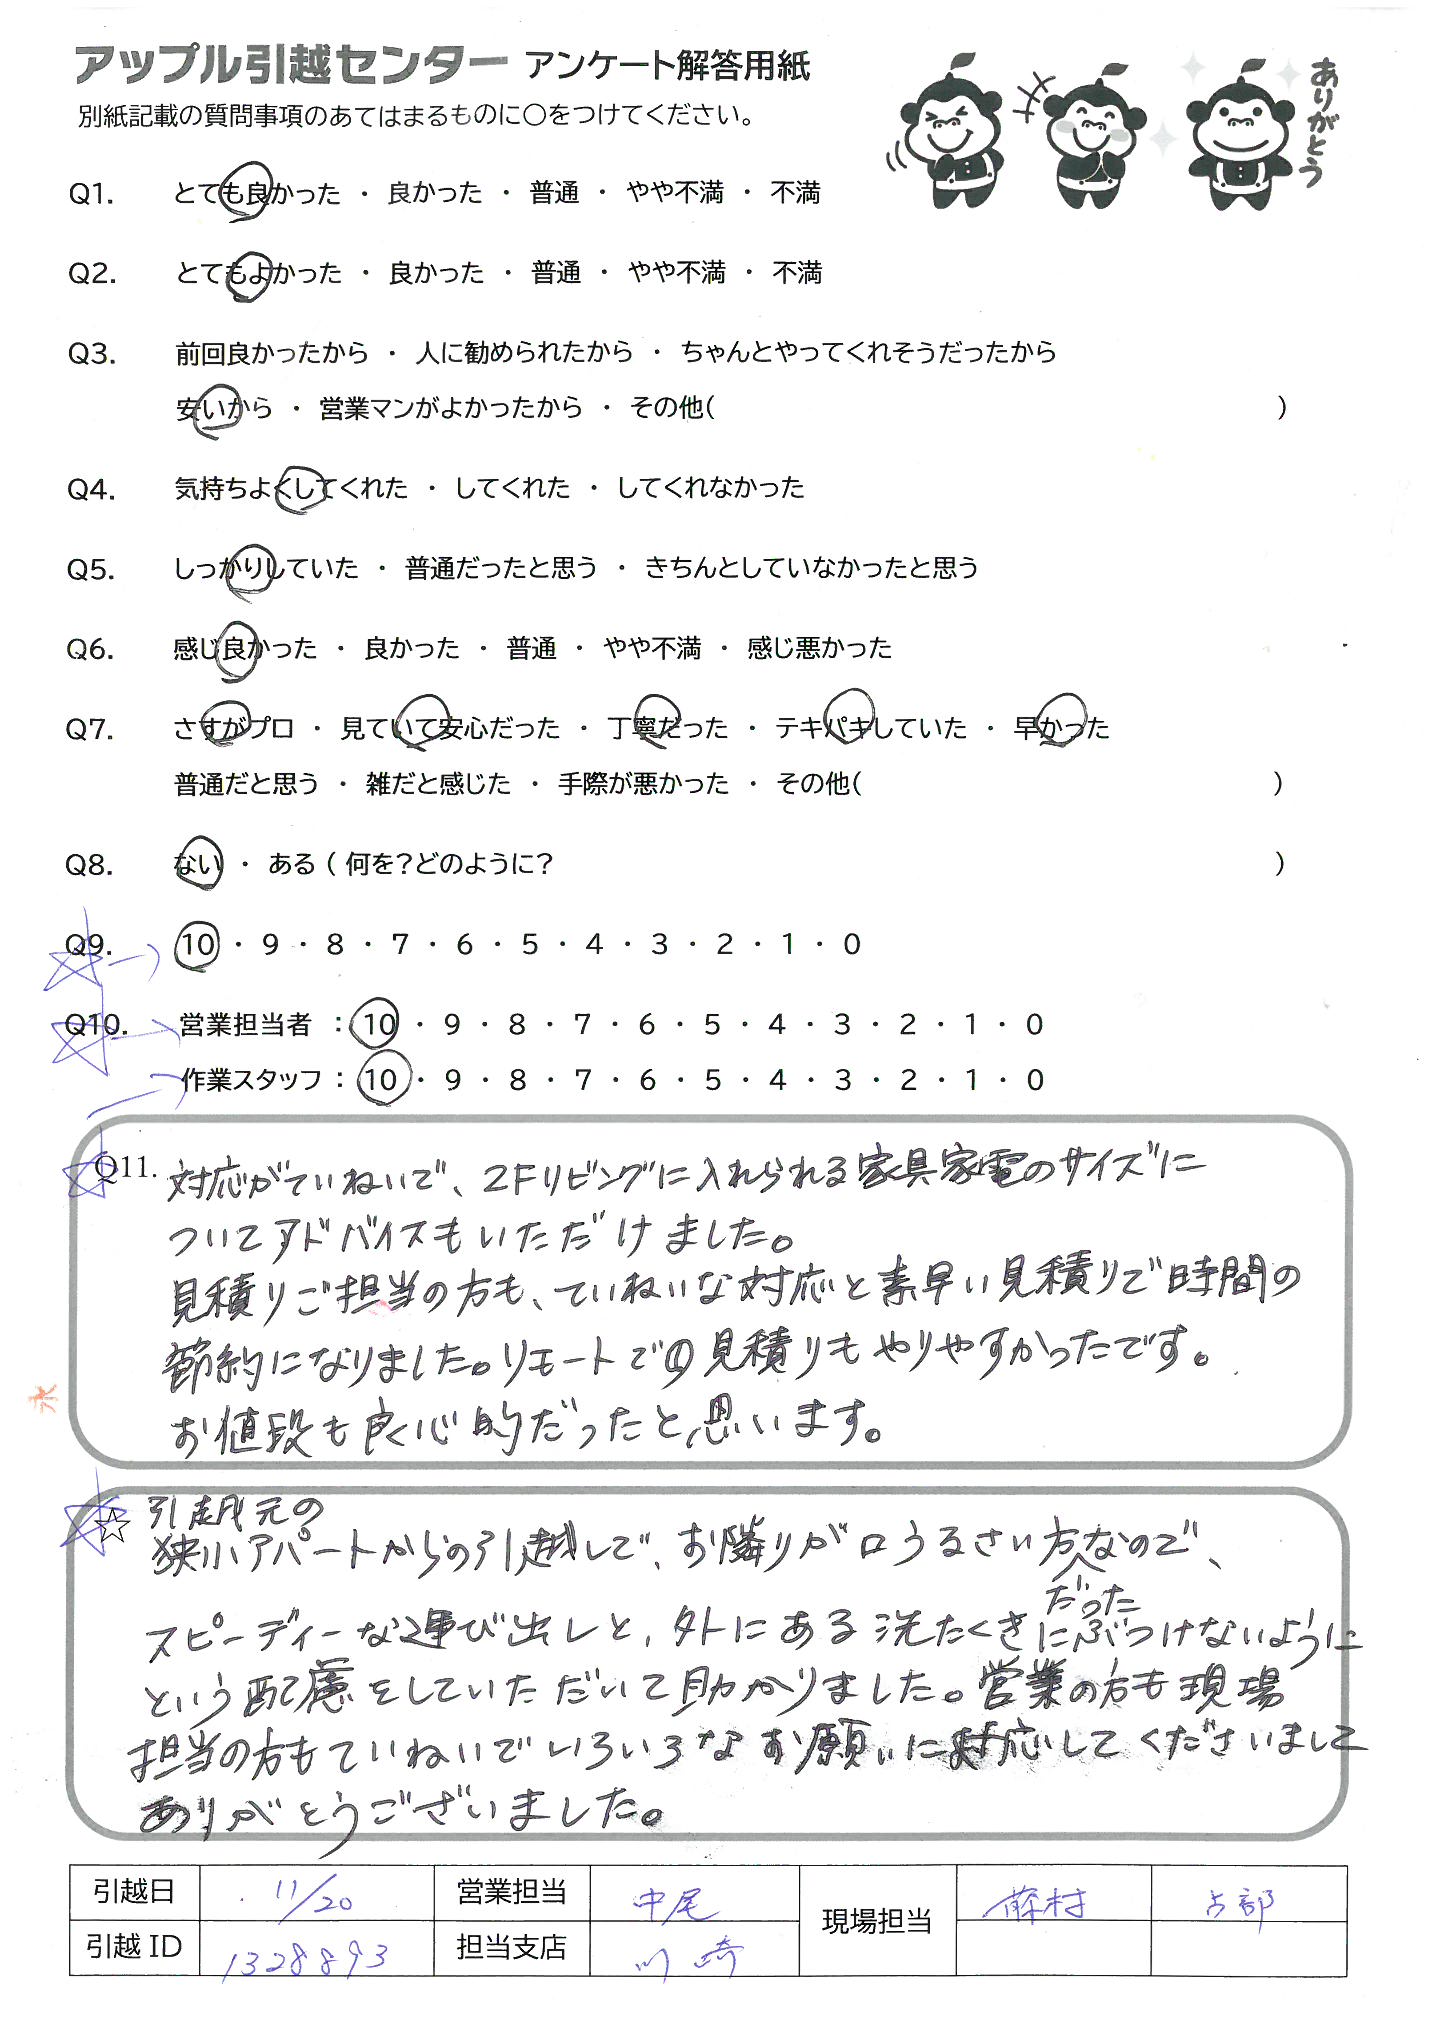 アップル引越センター アンケート解答用紙
ありがとう
別紙記載の質問事項のあてはまるものに○をつけてください。
Q1. とても良かった ・ 良かった ・ 普通 ・ やや不満 ・ 不満
Q2. とてもよかった ・ 良かった ・ 普通 ・ やや不満 ・ 不満
Q3. 前回良かったから ・ 人に勧められたから ・ ちゃんとやってくれそうだったから
安いから ・ 営業マンがよかったから ・ その他( )
Q4. 気持ちよくしてくれた ・ してくれた ・ してくれなかった
Q5. しっかりしていた ・ 普通だったと思う ・ きちんとしていなかったと思う
Q6. 感じ良かった ・ 良かった ・ 普通 ・ やや不満 ・ 感じ悪かった
Q7. さすがプロ ・ 見ていて安心だった ・ 丁寧だった ・ テキパキしていた ・ 早かった
普通だと思う ・ 雑だと感じた ・ 手際が悪かった ・ その他( )
Q8. ない ・ ある ( 何を?どのように? )
Q9. 10 ・ 9 ・ 8 ・ 7 ・ 6 ・ 5 ・ 4 ・ 3 ・ 2 ・ 1 ・ 0
Q10. 営業担当者 : 10 ・ 9 ・ 8 ・ 7 ・ 6 ・ 5 ・ 4 ・ 3 ・ 2 ・ 1 ・ 0
作業スタッフ : 10 ・ 9 ・ 8 ・ 7 ・ 6 ・ 5 ・ 4 ・ 3 ・ 2 ・ 1 ・ 0
Q11. 対応がていねいで、2Fリビングに入れられる家具家電のサイズに
ついてアドバイスもいただけました。
見積りご担当の方も、ていねいな対応と素早い見積りで時間の
節約になりました。リモートでの見積りもやりやすかったです。
お値段も良心的だったと思います。
☆ 引越元の
狭小アパートからの引越しで、お隣りが口うるさい方なので、
だった
スピーディーな運び出しと、外にある洗たくきにぶつけないように
という配慮をしていただいて助かりました。営業の方も現場
担当の方もていねいでいろいろなお願いに対応してくださいまして
ありがとうございました。
引越日 11/20 営業担当 中尾 現場担当 藤村 占部
引越 ID 1328893 担当支店 川崎